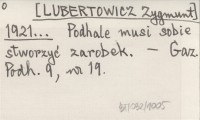 [LUBERTOWICZ Zygmunt]
1921... Podhale musi sobie
stworzyć zarobek. — Gaz.
Podh. 9, nr 19.